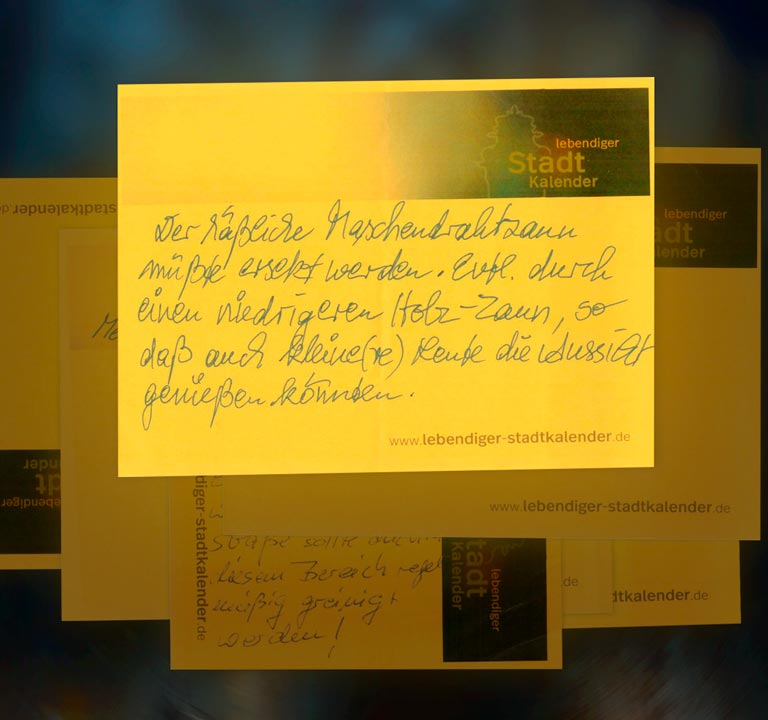 lebendiger
Stadt
Kalender
Der häßliche Maschendrahtzaun
müßte ersetzt werden. Evtl. durch
einen niedrigeren Holz-Zaun, so
daß auch kleine(re) Leute die Aussicht
genießen könnten.
www.lebendiger-stadtkalender.de
stadtkalender.d
lebendiger
adt
Kalender
www.lebendiger-stadtkalender.de
lebendiger
dt
der
diger-stadtkalender.de
Straße sollte auch
diesem Bereich regel
mäßig gereinigt
werden!
lebendiger
tadt
Kalender
de
dtkalender.de